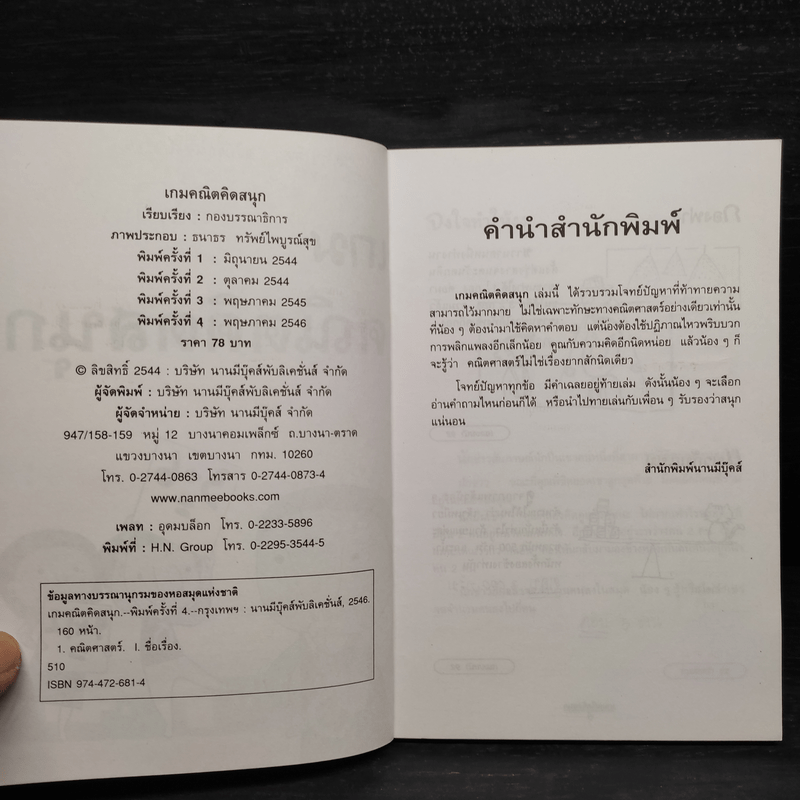 เกมคณิตคิดสนุก
เรียบเรียง : กองบรรณาธิการ
ภาพประกอบ : ธนาธร ทรัพย์ไพบูรณ์สุข
พิมพ์ครั้งที่ 1 : มิถุนายน 2544
พิมพ์ครั้งที่ 2 : ตุลาคม 2544
พิมพ์ครั้งที่ 3 : พฤษภาคม 2545
พิมพ์ครั้งที่ 4 : พฤษภาคม 2546
ราคา 78 บาท
© ลิขสิทธิ์ 2544 : บริษัท นานมีบุ๊คส์พับลิเคชั่นส์ จำกัด
ผู้จัดพิมพ์ : บริษัท นานมีบุ๊คส์พับลิเคชั่นส์ จำกัด
ผู้จัดจำหน่าย : บริษัท นานมีบุ๊คส์ จำกัด
947/158-159 หมู่ 12 บางนาคอมเพล็กซ์ ถ.บางนา-ตราด
แขวงบางนา เขตบางนา กทม. 10260
โทร. 0-2744-0863 โทรสาร 0-2744-0873-4
www.nanmeebooks.com
เพลท : อุดมบล็อก โทร. 0-2233-5896
พิมพ์ที่ : H.N. Group โทร. 0-2295-3544-5
ข้อมูลทางบรรณานุกรมของหอสมุดแห่งชาติ
เกมคณิตคิดสนุก.--พิมพ์ครั้งที่ 4.--กรุงเทพฯ : นานมีบุ๊คส์พับลิเคชั่นส์, 2546.
160 หน้า.
1. คณิตศาสตร์. I. ชื่อเรื่อง.
510
ISBN 974-472-681-4
คำนำสำนักพิมพ์
เกมคณิตคิดสนุก เล่มนี้ ได้รวบรวมโจทย์ปัญหาที่ท้าทายความ
สามารถไว้มากมาย ไม่ใช่เฉพาะทักษะทางคณิตศาสตร์อย่างเดียวเท่านั้น
ที่น้อง ๆ ต้องนำมาใช้คิดหาคำตอบ แต่น้องต้องใช้ปฏิภาณไหวพริบบวก
การพลิกแพลงอีกเล็กน้อย คูณกับความคิดอีกนิดหน่อย แล้วน้อง ๆ ก็
จะรู้ว่า คณิตศาสตร์ไม่ใช่เรื่องยากสักนิดเดียว
โจทย์ปัญหาทุกข้อ มีคำเฉลยอยู่ท้ายเล่ม ดังนั้นน้อง ๆ จะเลือก
อ่านคำถามไหนก่อนก็ได้ หรือนำไปทายเล่นกับเพื่อน ๆ รับรองว่าสนุก
แน่นอน
สำนักพิมพ์นานมีบุ๊คส์